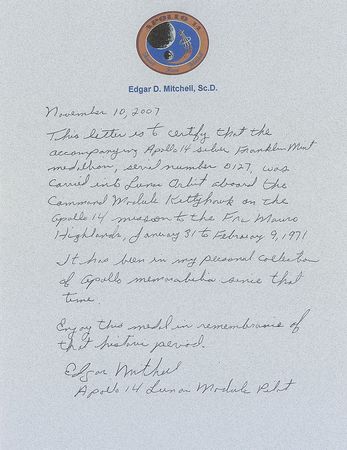 APOLLO 14
Edgar D. Mitchell, Sc.D.
November 10, 2007
This letter is to certify that the
accompanying Apollo 14 silver Franklin Mint
medallion, serial number 0127, was
carried into Lunar Orbit aboard the
Command Module Kittyhawk on the
Apollo 14 mission to the Fra Mauro
Highlands, January 31 to February 9, 1971
It has been in my personal collection
of Apollo memorabilia since that
time.
Enjoy this medal in remembrance of
that historic period.
Edgar Mitchell
Apollo 14 Lunar Module Pilot